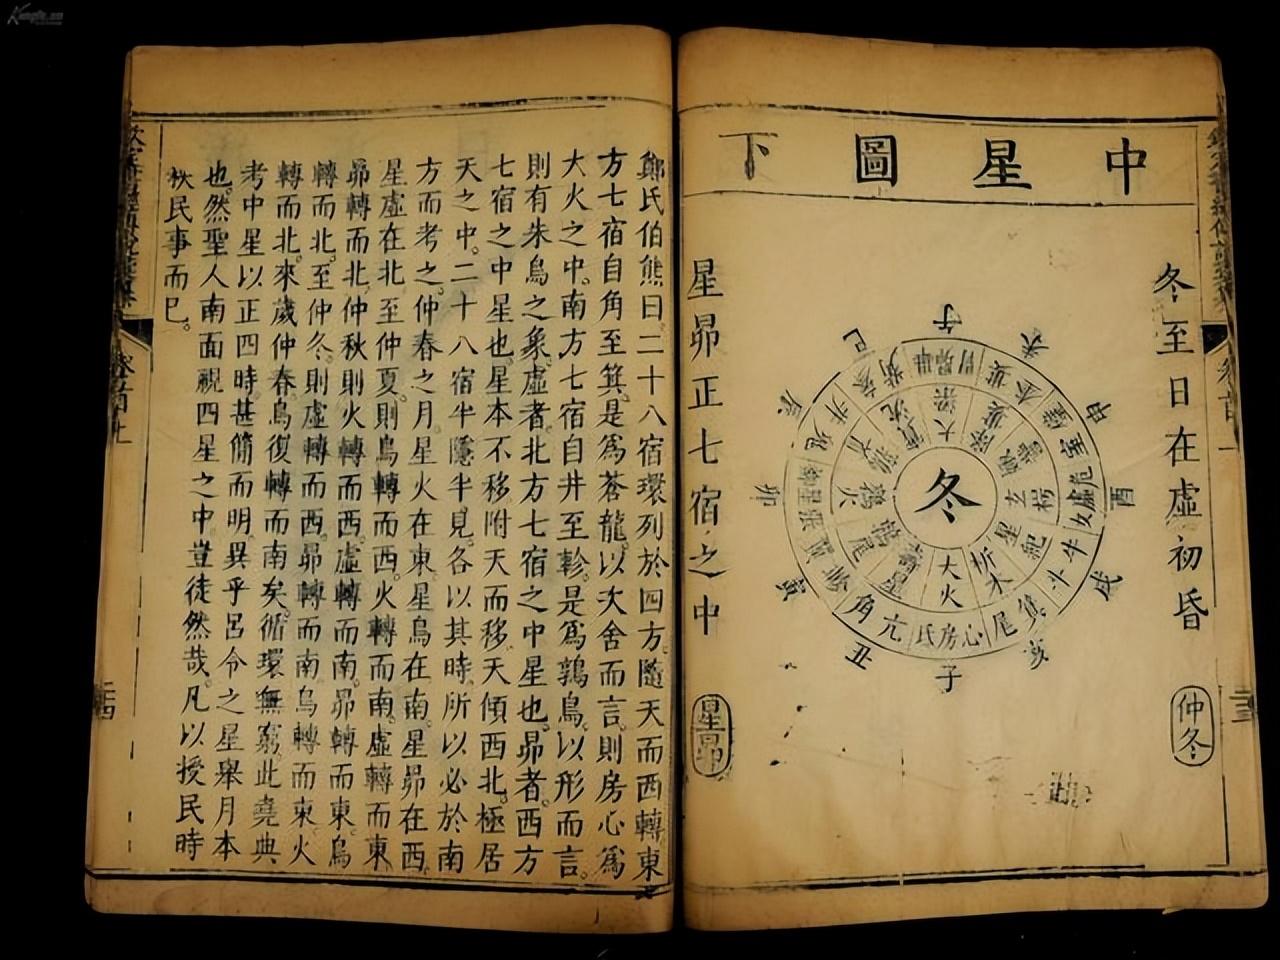 中星圖下
冬至日在虛初昏
仲冬
冬
午
申
酉
戌
亥
子
丑
寅
卯
辰
巳
大火
析木
星紀
玄枵
大梁
鶉火
鶉尾
壽星
氐房心
尾箕
斗牛
女虛危
角亢
星昴正七宿之中
星昴
二十三
鄭氏伯熊曰二十八宿環列於四方隨天而西轉東
方七宿自角至箕是爲蒼龍。以次舍而言。則房心爲
大火之中。南方七宿自井至軫。是爲鶉鳥。以形而言。
則有朱鳥之象。虛者。北方七宿之中星也。昴者。西方
七宿之中星也。星本不移。附天而移。天傾西北。極居
天之中。二十八宿半隱半見。各以其時。所以必於南
方而考之。仲春之月。星火在東。星鳥在南。星昴在西。
星虛在北。至仲夏。則鳥轉而西。火轉而南。虛轉而東
昴轉而北。仲秋則火轉而西。虛轉而南。昴轉而東。鳥
轉而北。至仲冬。則虛轉而西。昴轉而南。鳥轉而東。火
轉而北。來歲仲春。鳥復轉而南矣。循環無窮。此堯典
考中星以正四時。甚簡而明。異乎呂令之星舉月本
也。然聖人南面視四星之中。豈徒然哉。凡以授民時
秩民事而已。
二十四